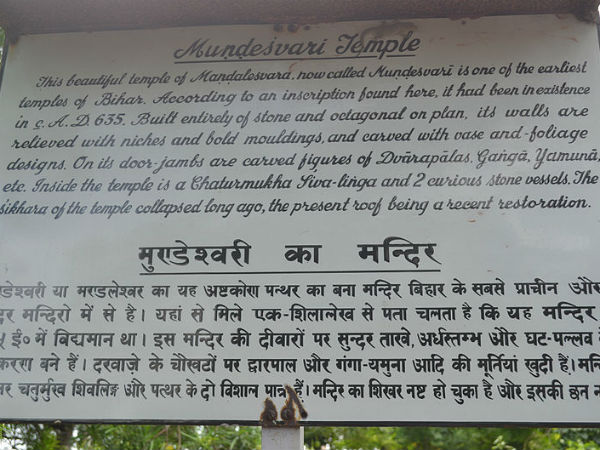 Mundeśvari Temple
This beautiful temple of Mandalesvara, now called Mundesvarī is one of the earliest
temples of Bihar. According to an inscription found here, it had been in existence
in c. A.D. 635. Built entirely of stone and octagonal on plan, its walls are
relieved with niches and bold mouldings, and carved with vase and-foliage
designs. On its door-jambs are carved figures of Dvārapālas, Gaṅgā, Yamunā,
etc. Inside the temple is a Chaturmukha Śiva-liṅga and 2 curious stone vessels. The
śikhara of the temple collapsed long ago, the present roof being a recent restoration.
मुण्डेश्वरी का मन्दिर
ण्डेश्वरी या मण्डलेश्वर का यह अष्टकोण पत्थर का बना मन्दिर बिहार के सबसे प्राचीन और
मन्दिरो में से है। यहां से मिले एक-शिलालेख से पता चलता है कि यह मन्दिर
ई० में विद्यमान था। इस मन्दिर की दीवारों पर सुन्दर ताखे, अर्धस्तम्भ और घट-पल्लव
करण बने हैं। दरवाज़े के चौखटों पर द्वारपाल और गंगा-यमुना आदि की मूर्तियां खुदी हैं।
चतुर्मुख शिवलिङ्ग और पत्थर के दो विशाल पात्र हैं। मन्दिर का शिखर नष्ट हो चुका है और इसकी छत